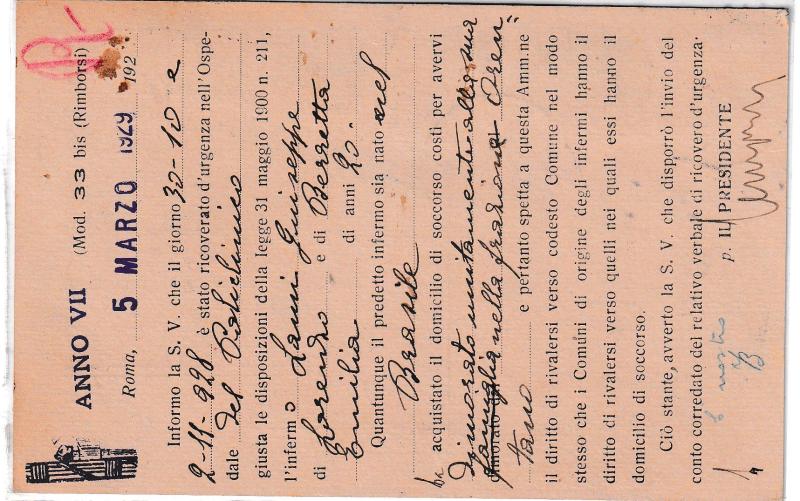 ANNO VII (Mod. 33 bis (Rimborsi)
Roma, 5 MARZO 1929 192
Informo la S. V. che il giorno 30-10 e
2-11-928 è stato ricoverato d'urgenza nell'Ospe-
dale del Policlinico
giusta le disposizioni della legge 31 maggio 1900 n. 211,
l'infermo Lanni Giuseppe
di Lorenzo e di Berretta
Emilia di anni 20.
Quantunque il predetto infermo sia nato nel
Brasile
ha acquistato il domicilio di soccorso costì per avervi
dimorato unitamente alla sua
dimorato
famiglia nella frazione Aren-
tano e pertanto spetta a questa Amm.ne
il diritto di rivalersi verso codesto Comune nel modo
stesso che i Comuni di origine degli infermi hanno il
diritto di rivalersi verso quelli nei quali essi hanno il
domicilio di soccorso.
Ciò stante, avverto la S. V. che disporrò l'invio del
conto corredato del relativo verbale di ricovero d'urgenza.
p. IL PRESIDENTE